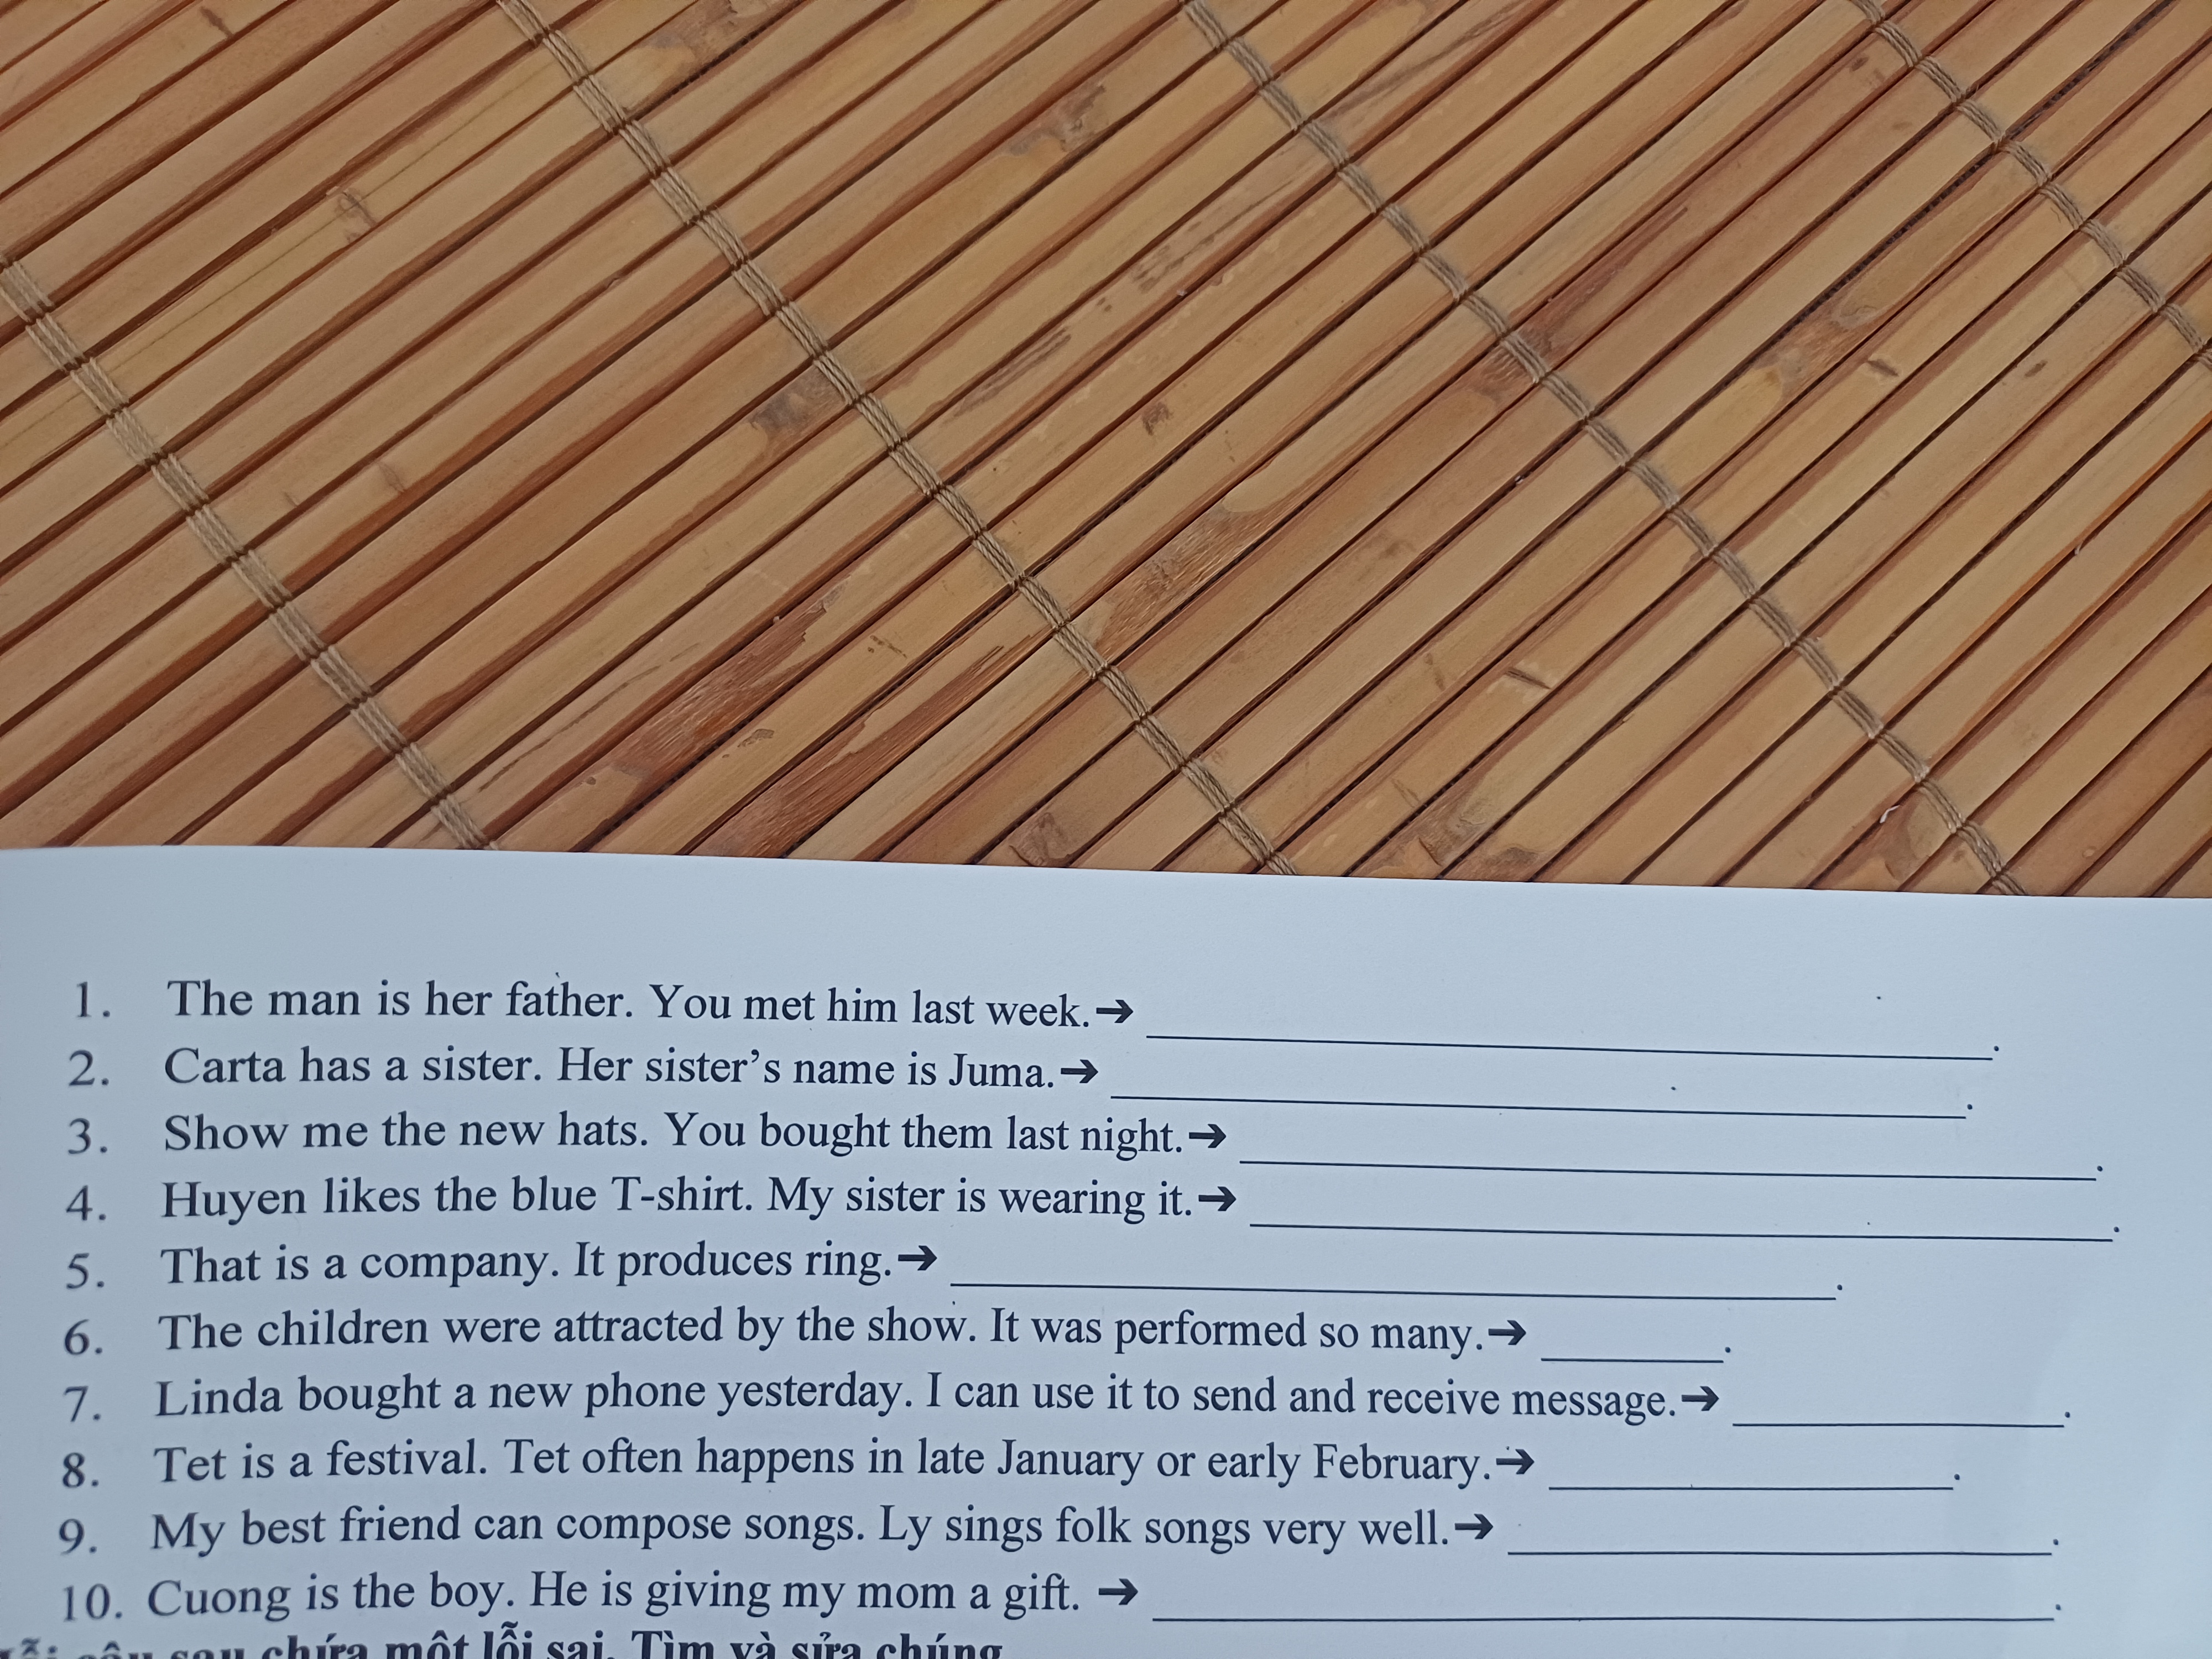 1. The man is her father. You met him last week.➔ ____________________.
2. Carta has a sister. Her sister’s name is Juma.➔ ____________________.
3. Show me the new hats. You bought them last night.➔ ____________________.
4. Huyen likes the blue T-shirt. My sister is wearing it.➔ ____________________.
5. That is a company. It produces ring.➔ ____________________.
6. The children were attracted by the show. It was performed so many.➔ ______.
7. Linda bought a new phone yesterday. I can use it to send and receive message.➔ __________.
8. Tet is a festival. Tet often happens in late January or early February.➔ ____________.
9. My best friend can compose songs. Ly sings folk songs very well.➔ ________________.
10. Cuong is the boy. He is giving my mom a gift. ➔ ____________________.
câu sau chứa một lỗi sai. Tìm và sửa chúng